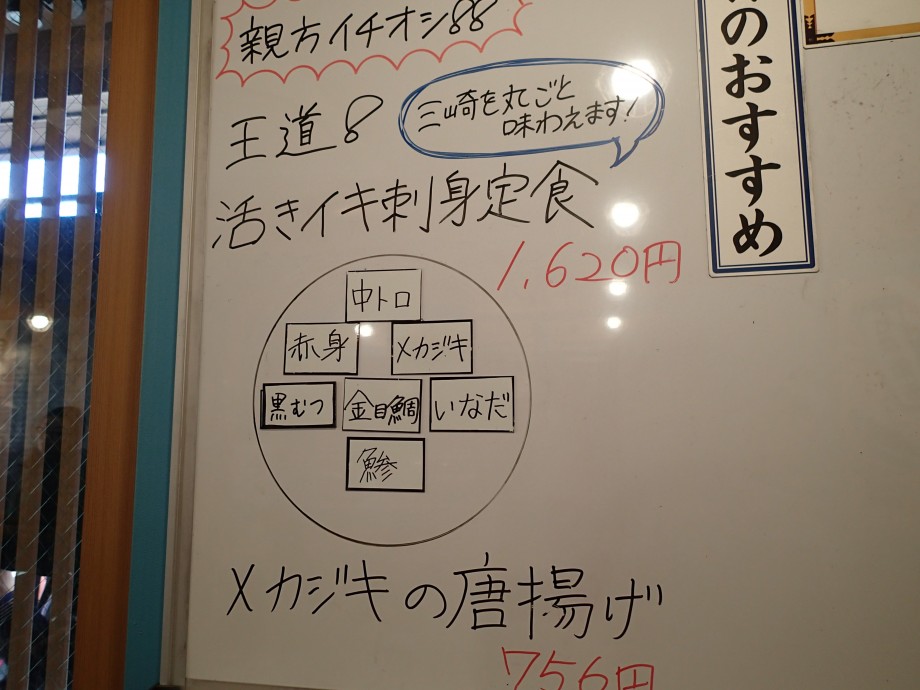 親方イチオシ!!
王道!
三崎を丸ごと
味わえます!
活きイキ刺身定食
1,620円
中トロ
赤身
メカジキ
黒むつ
金目鯛
いなだ
鰺
メカジキの唐揚げ
756円
のおすすめ